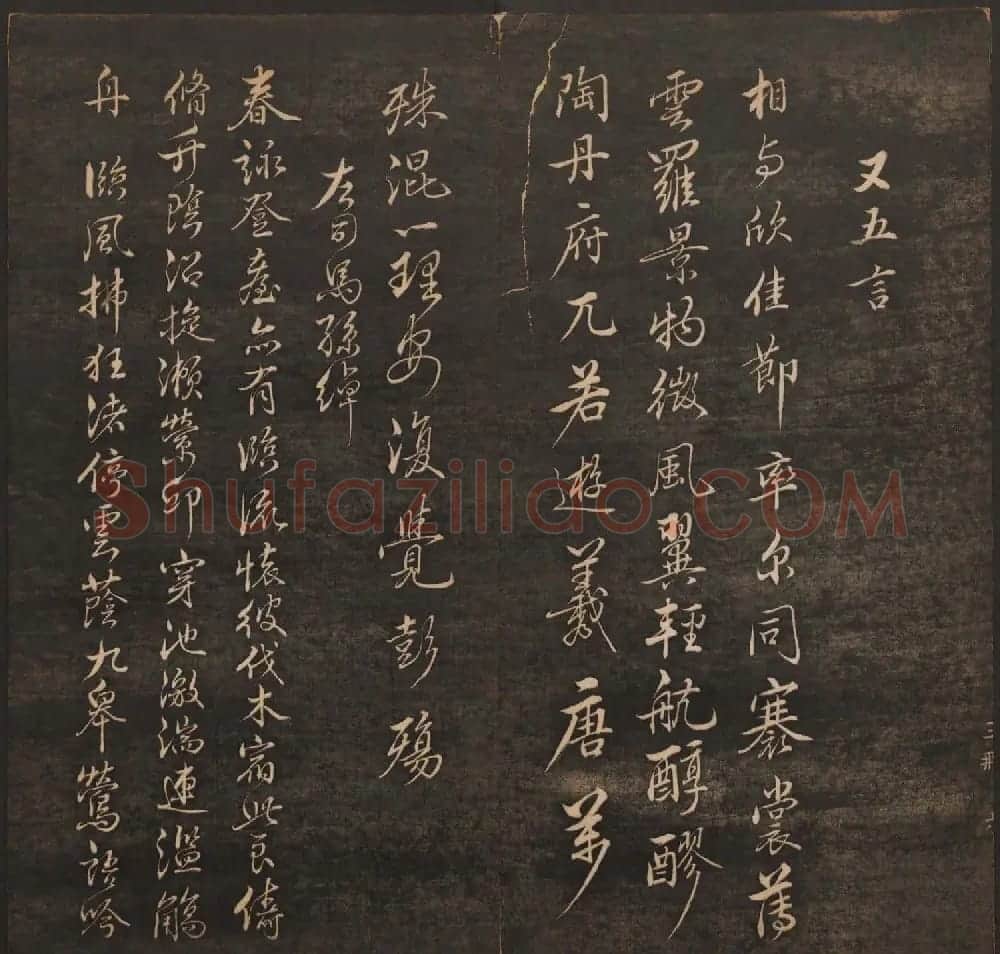 又五言
相与欣佳節率尔同褰裳薄
雲羅景物微風翼輕航醇醪
陶丹府兀若遊羲唐萬
殊混一理安復覺彭殤
左司馬孫綽
春詠登臺亦有臨流懷彼伐木宿此良儔
脩竹蔭沼旋瀨縈丘穿池激湍連濫觴
舟 臨風拂狂渚停雲蔭九皋鶯語吟
Shufaziliao.COM